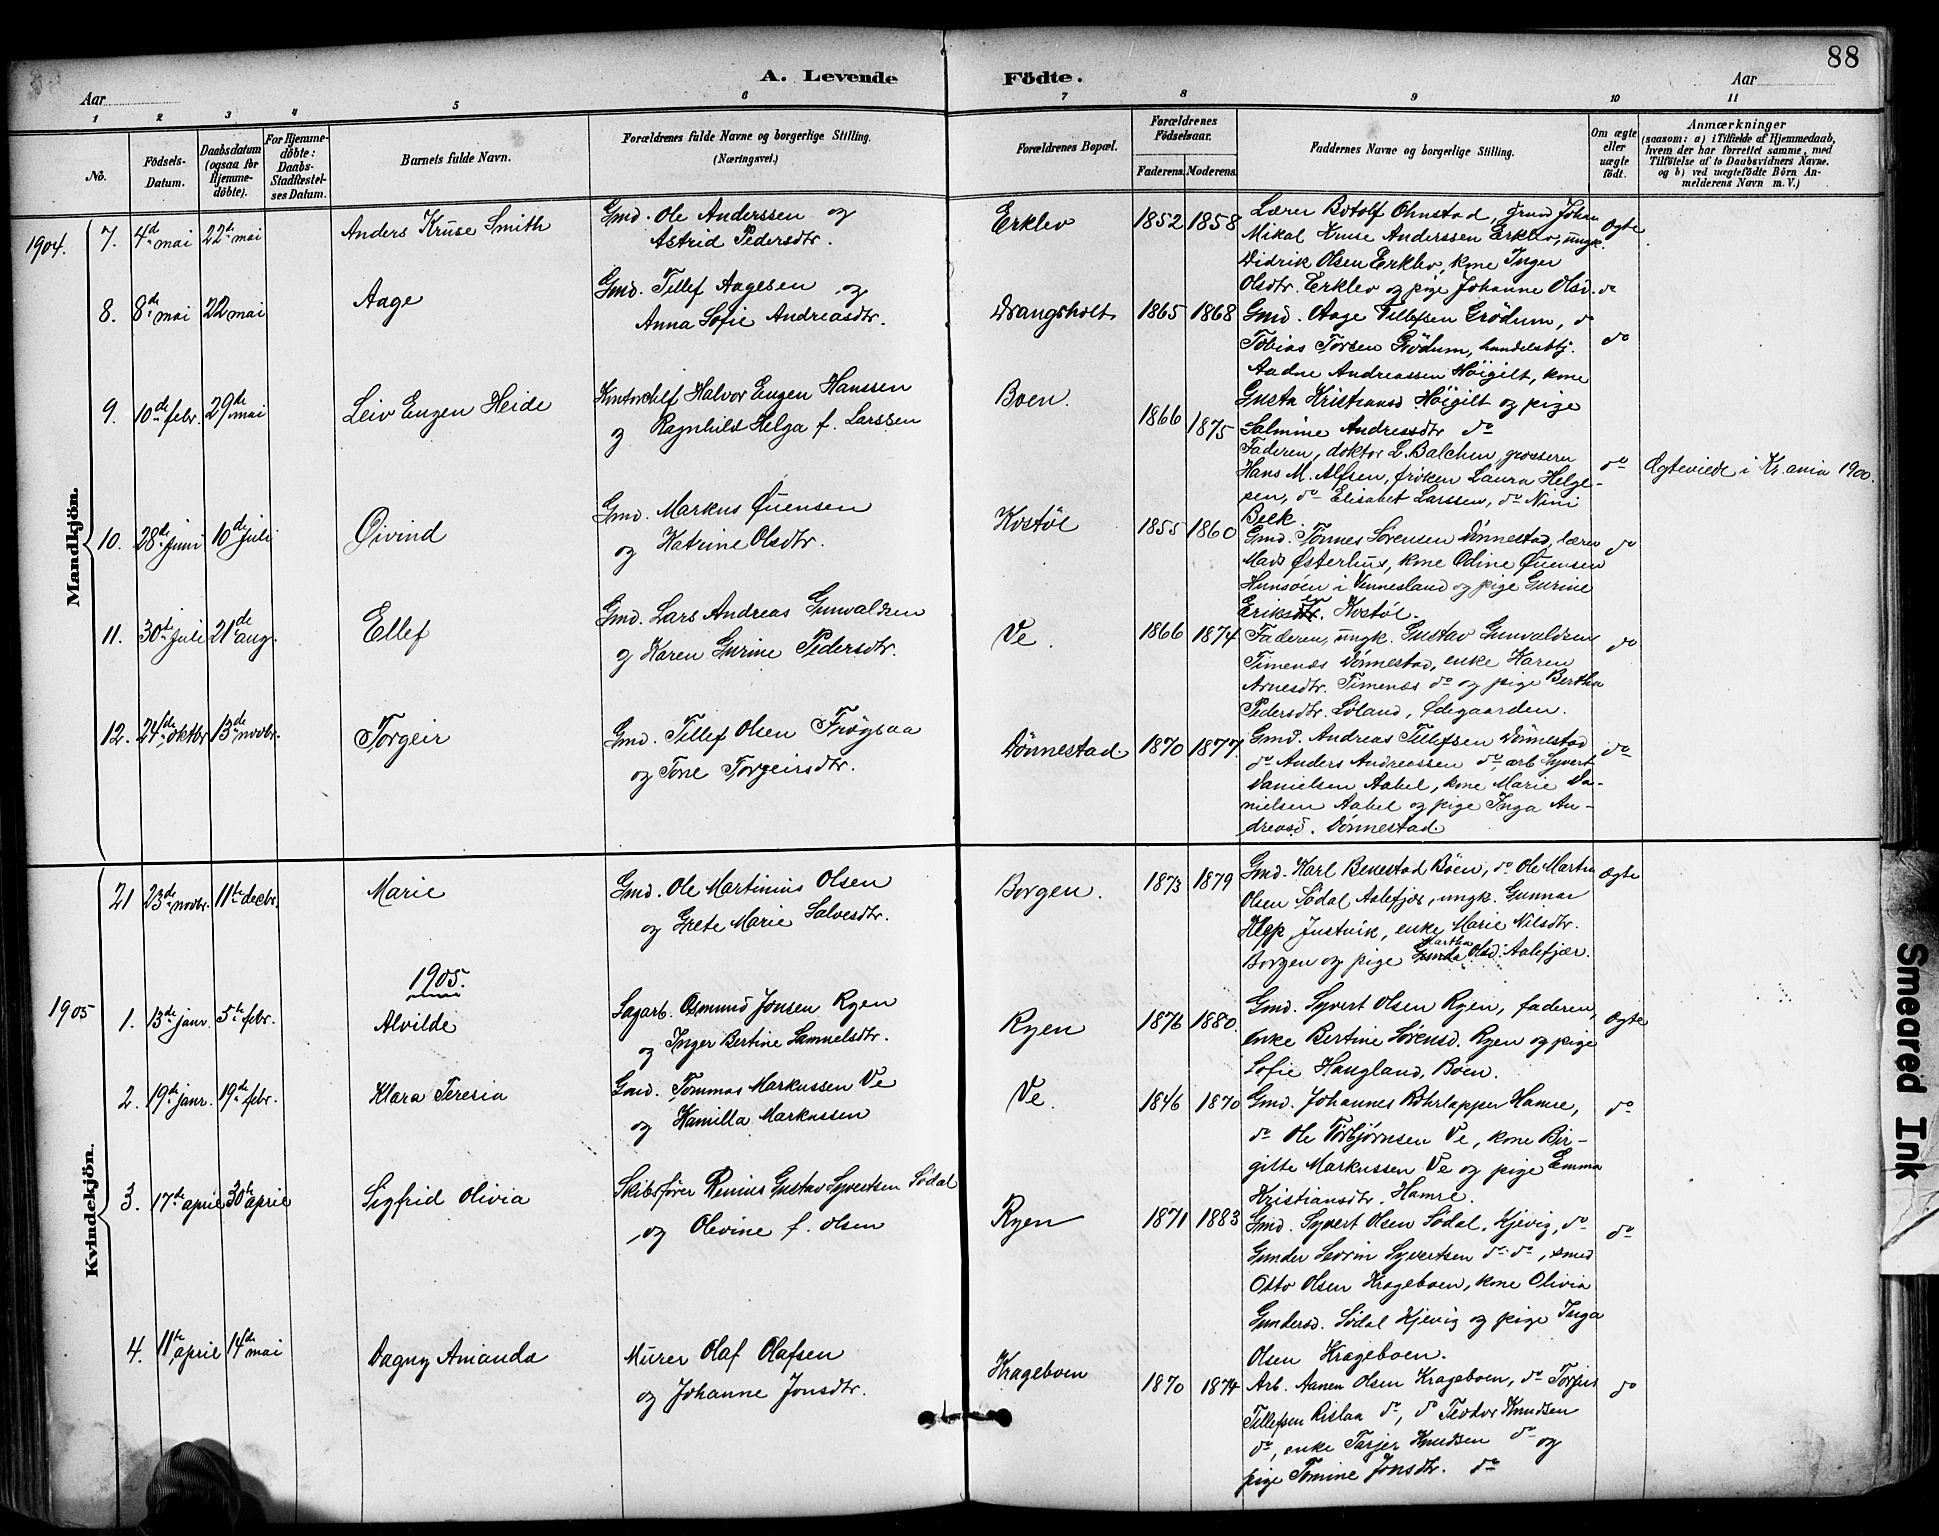 88
A. Levende Födte.
Aar Aar
1 2 3 4 5 6 7 8 9 10 11
No.
Födsels-Datum.
Daabsdatum (ogsaa for Hjemmedöbte).
For Hjemmedöbte: Daabs-Stadfæstelses Datum.
Barnets fulde Navn.
Forældrenes fulde Navne og borgerlige Stilling. (Næringsvei.)
Forældrenes Bopæl.
Forældrenes Födselsaar.
Faderens. Moderens.
Faddernes Navne og borgerlige Stilling.
Om ægte eller uægte födt.
Anmærkninger
(saasom: a) i Tilfælde af Hjemmedaab, hvem der har forrettet samme, med Tilföielse af to Daabsvidners Navne. og b) ved uægtefödte Börn Anmelderens Navn m. V.)
Mandkjön.
1904. 7. 4de mai 22de mai Anders Kruse Smith
Gmd. Ole Anderssen og
Astrid Pedersdtr.
Erklev 1852 1858
Lærer Botolf Ohnstad, grmd Johan
Mikal Kruse Anderssen Erklev, ungk.
Didrik Olsen Erklev, kone Inger
Olsdtr. Erklev og pige Johanne Olsd. do
Ægte
8. 8de mai 22 mai Aage
Gmd. Tellef Aagesen og
Anna Sofie Andreasdtr.
Drangsholt 1865 1868
Gmd. Aage Tellefsen Grödum, do
Tobias Torsen Grödum, handelsbtj.
Aadne Andreassen Höigilt, kone
Gusta Kristiansd Höigilt og pige
Salmine Andreasdtr do
do
9. 10de febr. 29de mai Leiv Eugen Heide
Kontorchef Halvor Eugen Hanssen
og Ragnhild Helga f. Larssen
Boen. 1866 1875
Faderen, doktor L. Balchen, grosserer
Hans M. Alfsen, fröken Laura Helge-
sen, do Elisabet Larssen, do Nini
Beck
do
Ægteviede i Kr.ania 1900.
10. 28de juni 10de juli Øivind
Gmd. Markus Øuensen
og Katrine Olsdtr.
Kostöl 1855 1860
Gmd. Tönnes Sörensen Dönnestad, lærer
Mads Østerhus, kone Odine Øuensen
Hunsöen i Vennesland og pige Gurine
Eriksen Kostöl.
do
11. 30te juli 21de aug. Ellef
Gmd. Lars Andreas Gunvaldsen
og Karen Gurine Pedersdtr.
Ve. 1866 1874
Faderen, ungk. Gustav Gunvaldsen
Timenæs Dönnestad, enke Karen
Arnesdtr. Timenæs do og pige Bertha
Pedersdtr. Löland, Ødegaarden.
do
12. 24de oktbr 13de novbr. Torgeir
Gmd. Tellef Olsen Frøysaa
og Tone Torgeirsdtr.
Dönnestad. 1870 1877.
Gmd. Andreas Tellefsen Dönnestad
do Anders Andreassen do, arb Syvert
Danielsen Aabel, kone Marie Da-
nielsen Aabel og pige Inga An-
dreasd. Dönnestad.
do
Kvindekjön.
21 23de novbr. 11te decbr. Marie
Gmd. Ole Martinius Olsen
og Grete Marie Salvesdtr.
Borgen. 1873 1879
Gmd. Karl Benestad Böen, do Ole Martin
Olsen Södal Aalefjær, ungk. Gunnar
Klep, Justvik, enke Marie Nilsdtr.
Borgen og pige Martha Olsd. Aalefjær.
Ægte
1905.
1905 1. 13de janr. 5te febr. Alvilde
Sagarb. Osmund Jonsen Ryen
og Inger Bertine Samuelsdtr.
Ryen 1876 1880.
Gmd. Syvert Olsen Ryen, faderen,
enke Bertine Sörensd. Ryen og pige
Sofie Haugland, Böen.
Ægte
2. 19de janr. 19de febr. Klara Teresia
Gmd. Tommas Markussen Ve
og Kamilla Markussen
Ve. 1846 1870
Gmd. Johannes Rohrlapper Hamre,
do Ole Torbjørnsen Ve, kone Bir-
gitte Markussen Ve og pige Emma
Kristiansdtr. Hamre.
do
3. 17de april 30te april Sigfrid Olivia
Skibsförer Renius Gustav Syvertsen Södal
og Olevine f. Olsen
Ryen 1871 1883
Gmd. Syvert Olsen Södal, Kjevig, do
Gunder Severin Syvertsen do do, smed
Otto Olsen Krageboen, kone Olivia
Gundersd. Södal Kjevig og pige Inga
Olsen Krageboen.
do
4. 11te april 14de mai Dagny Amanda
Murer Olaf Olafsen
og Johanne Jonsdtr.
Krageboen 1870 1874
Arb. Aanen Olsen Krageboen, do Torjus
Tellefsen Rislaa do, do Teodor Knudsen
do, enke Tarjer Knudsen do og
pige Tomine Jonsdtr. do
do
Smeared Ink